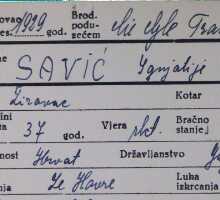 ovao 1929 god. Brod. podu- Ile
es. zećem
me SAVIĆ Ignjatije
Žirovac Kotar
ini 37 god. Vjera rkt. Bračno
ta stanje
nost Hrvat Državljanstvo
nja Le Havre Luka
izkrcanja